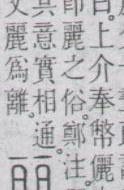 上介奉幣儷
即麗之俗。鄭注
其意實相通。
文麗爲離。